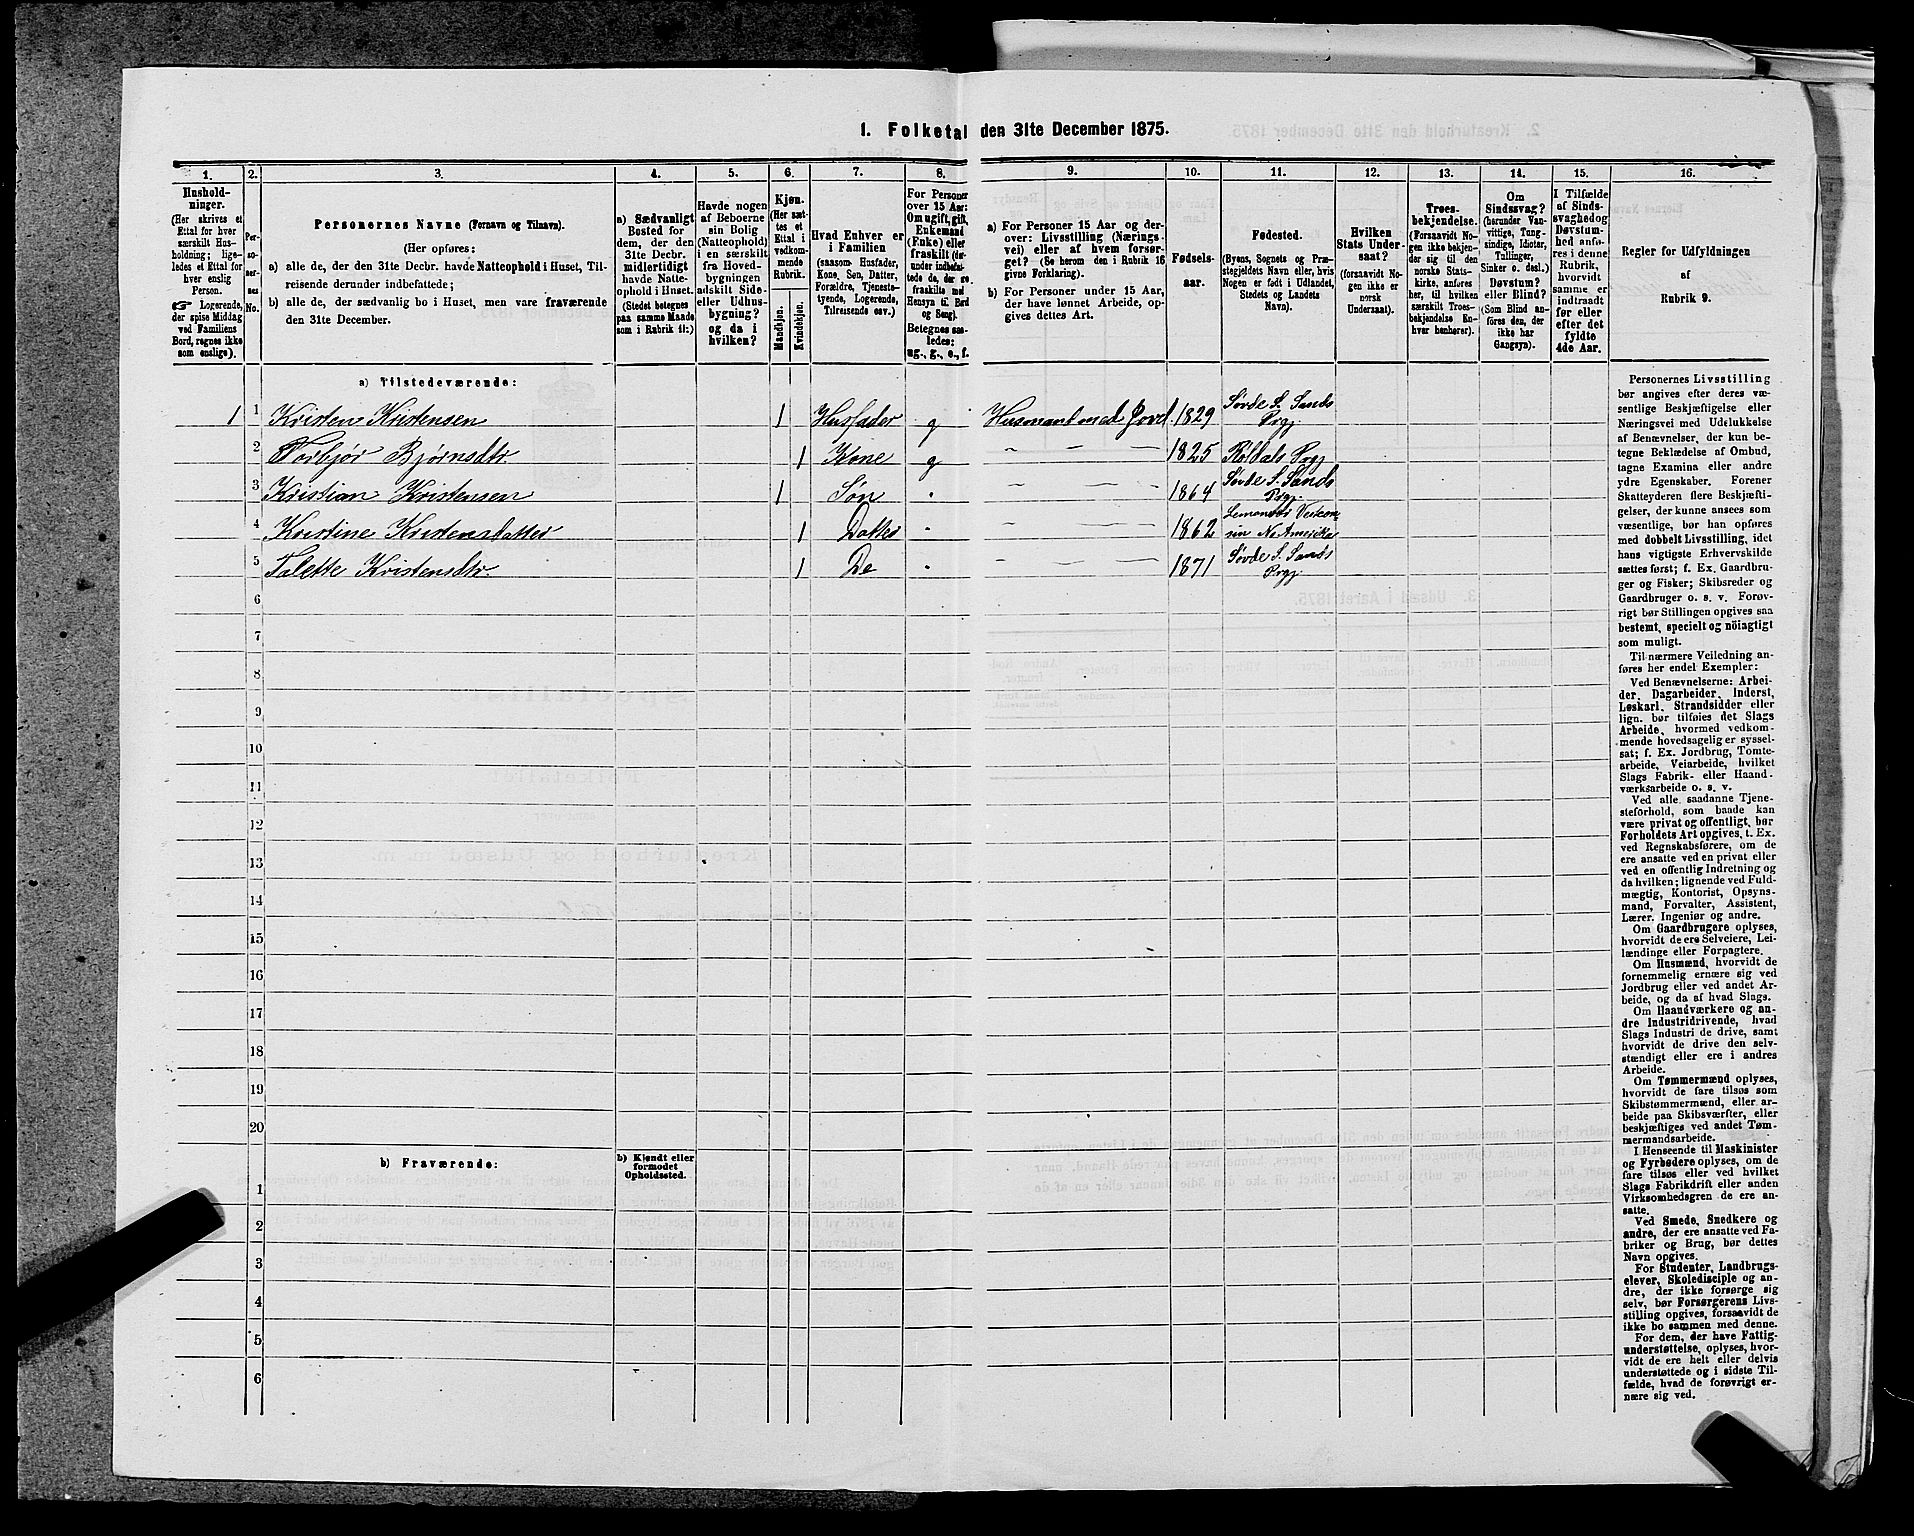 1. Folketal den 31te December 1875.
1. 2. 3. 4. 5. 6. 7. 8. 9. 10. 11. 12. 13. 14. 15. 16.
Hushold-
ninger.
(Her skrives et
Ettal for hver
særskilt Hus-
holdning; lige-
ledes et Ettal for
hver enslig
Person.
☞ Logerende,
der spise Middag
ved Familiens
Bord, regnes ikke
som enslige).
Per-
so-
ner-
nes
No.
Personernes Navne (Fornavn og Tilnavn).
(Her opføres:
a) alle de, der den 31te Decbr. havde Natteophold i Huset, Til-
reisende derunder indbefattede;
b) alle de, der sædvanlig bo i Huset, men vare fraværende
den 31te December.
a) Sædvanligt
Bosted for
dem, der den
31te Decbr.
midlertidigt
havde Natte-
ophold i Huset.
(Stedet betegnes
paa samme Maade
som i Rubrik 11:)
Havde nogen
af Beboerne
sin Bolig
(Natteophold)
i en særskilt
fra Hoved-
bygningen
adskilt Side-
eller Udhus-
bygning?
og da i
hvilken?
Kjøn.
(Her sæt-
tes et
Ettal i
vedkom-
mende
Rubrik.
Mandkjøn.
Kvindekjøn.
Hvad Enhver er
i Familien
(saasom Husfader,
Kone, Søn, Datter,
Forældre, Tjeneste-
tyende, Logerende,
Tilreisende osv.)
For Personer
over 15 Aar:
Om ugift, gift,
Enkemand
(Enke) eller
fraskilt (der-
under indbefat-
tede de, der ere
fraskilte med
Hensyn til Bord
og Seng).
Betegnes saa-
ledes:
ug., g., e., f.
a) For Personer 15 Aar og der-
over: Livsstilling (Nærings-
vei) eller af hvem forsør-
get? (Se herom den i Rubrik 16
givne Forklaring).
b) For Personer under 15 Aar,
der have lønnet Arbeide, op-
gives dettes Art.
Fødsels-
aar.
Fødested.
(Byens, Sognets og Præ-
stegjeldets Navn eller, hvis
Nogen er født i Udlandet,
Stedets og Landets
Navn).
Hvilken
Stats Under-
saat?
(forsaavidt No-
gen ikke er
norsk
Undersaat).
Troes-
bekjendelse.
(Forsaavidt No-
gen ikke bekjen-
der sig til den
norske Stats-
kirke, anføres
her, til hvilken
særskilt Troes-
bekjendelse En-
hver henhører).
Om
Sindssvag?
(herunder Van-
vittige, Tung-
sindige, Idioter,
Tullinger,
Sinker o. desl.)
Døvstum?
eller Blind?
(Som Blind an-
føres den, der
ikke har
Gangsyn).
I Tilfælde
af Sinds-
svaghed og
Døvstum-
hed anfø-
res i denne
Rubrik,
hvorvidt
samme er
indtraadt
før eller
efter det
fyldte
4de Aar.
Regler for Udfyldningen
af
Rubrik 9.
a) Tilstedeværende:
1 1 Kristen Kristensen 1 Husfader g Husmand med Jord. 1829 Søvde S. Sands Prgj
2 Torbjør Bjørnsdtr 1 Kone g — — — 1825 Røldals Prgj
3 Kristian Kristensen 1 Søn " — — — 1864 Søvde S. Sands Prgj.
4 Kristine Kristensdatter 1 Datter " — — — 1862 N. Amerika
5 Talette Kristensdtr. 1 De " — — 1871 Søvde S. Sands Prgj
6
7
8
9
10
11
12
13
14
15
16
17
18
19
20
b) Fraværende:
b) Kjendt eller
formodet
Opholdssted.
1
2
3
4
5
6
Personernes Livsstilling
bør angives efter deres væ-
sentlige Beskjæftigelse eller
Næringsvei med Udelukkelse
af Benævnelser, der kun be-
tegne Beklædelse af Ombud,
tagne Examina eller andre
ydre Egenskaber. Forener
Skatteyderen flere Beskjæfti-
gelser, der kunne ansees som
væsentlige, bør han opføres
med dobbelt Livsstilling, idet
hans vigtigste Erhvervskilde
sættes først; f. Ex. Gaardbru-
ger og Fisker; Skibsreder og
Gaardbruger o. s. v. Forøv-
rigt bør Stillingen opgives saa
bestemt, specielt og nöiagtigt
som muligt.
Til nærmere Veiledning an-
føres her endel Exempler:
Ved Benævnelserne: Arbei-
der, Dagarbeider, Inderst,
Løskarl, Strandsidder eller
lign. bør tilføies det Slags
Arbeide, hvormed vedkom-
mende hovedsagelig er syssel-
sat; f. Ex. Jordbrug, Tomte-
arbeide, Veiarbeide, hvilket
Slags Fabrik- eller Haand-
værksarbeide o. s. v.
Ved alle saadanne Tjene-
steforhold, som baade kan
være privat og offentligt, bør
Forholdets Art opgives, t. Ex.
ved Regnskabsførere, om de
ere ansatte ved en privat eller
ved en offentlig Indretning og
da hvilken; lignende ved Fuld-
mægtig, Kontorist, Opsyns-
mand, Forvalter, Assistent,
Lærer, Ingeniør og andre.
Om Gaardbrugere oplyses,
hvorvidt de ere Selveiere, Lei-
lændinge eller Forpagtere.
Om Husmænd, hvorvidt de
fornemmelig ernære sig ved
Jordbrug eller ved andet Ar-
beide, og da af hvad Slags.
Om Haandværkere og an-
dre Industridrivende, hvad
Slags Industri de drive, samt
hvorvidt de drive den selv-
stændigt eller ere i andres
Arbeide.
Om Tømmermænd oplyses,
hvorvidt de fare tilsøs som
Skibstømmermænd, eller ar-
beide paa Skibsværfter, eller
beskjæftiges ved andet Tøm-
mermandsarbeide.
I Henseende til Maskinister
og Fyrbødere oplyses, om de
fare tilsøs eller ved hvilket
Slags Fabrikdrift eller anden
Virksomhedsgren de ere an-
satte.
Ved Smede, Snedkere og
andre, der ere ansatte ved Fa-
briker og Brug, bør dettes
Navn opgives.
For Studenter, Landbrugs-
elever, Skoledisciple og an-
dre, der ikke forsørge sig
selv, bør Forsørgerens Livs-
stilling opgives, forsaavidt de
ikke bo sammen med denne.
For dem, der have Fattig-
understøttelse, oplyses, hvor-
vidt de ere helt eller delvis
understøttede og i sidste Til-
fælde, hvad de forøvrigt er-
nære sig ved.